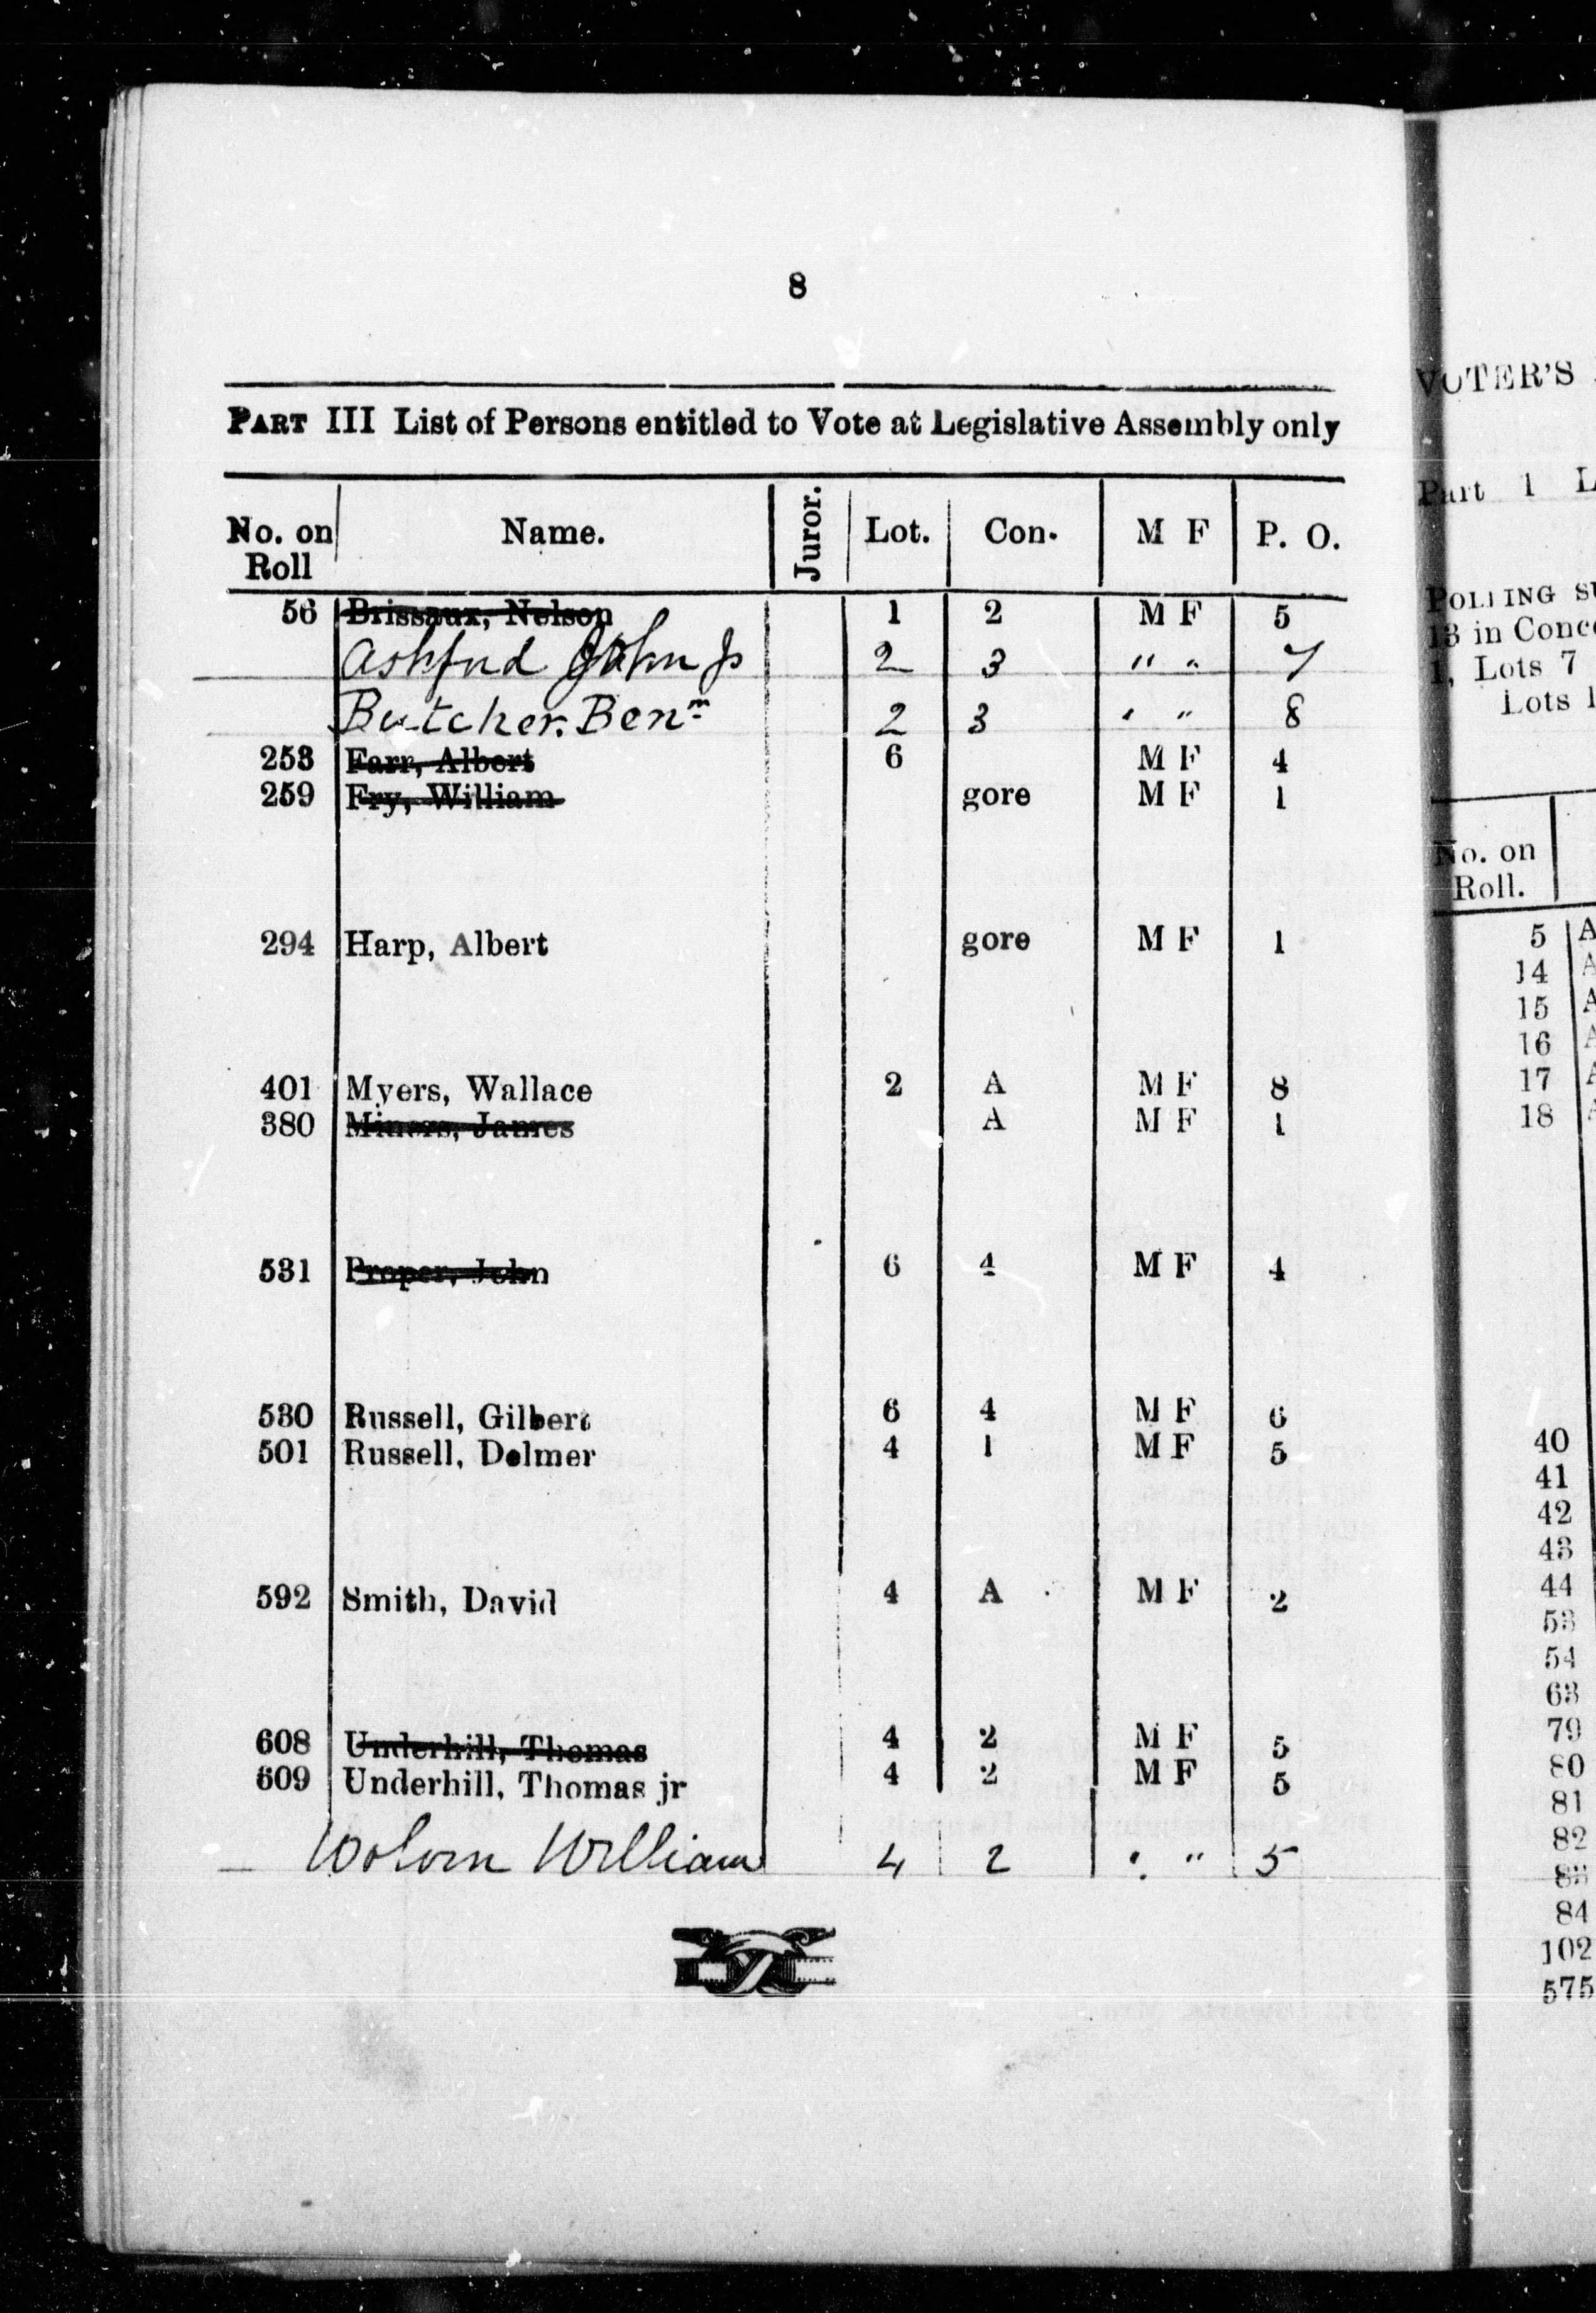 8
PART III List of Persons entitled to Vote at Legislative Assembly only
No. on Roll Name. Juror. Lot. Con. M F P. O.
56 Brissaux, Nelson 1 2 M F 5
Ashford John Jr 2 3 " " 7
Butcher. Benm 2 3 " " 8
253 Farr, Albert 6 M F 4
259 Fry, William gore M F 1
294 Harp, Albert gore M F 1
401 Myers, Wallace 2 A M F 8
380 Miners, James A M F 1
531 Proper, John 6 4 M F 4
530 Russell, Gilbert 6 4 M F 6
501 Russell, Delmer 4 1 M F 5
592 Smith, David 4 A M F 2
608 Underhill, Thomas 4 2 M F 5
609 Underhill, Thomas jr 4 2 M F 5
William 4 2 " " 5
VOTER'S
Part 1 L
POLLING SU
13 in Conce
1, Lots 7
Lots 1
No. on
Roll.
5 A
14 A
15 A
16 A
17 A
18 A
40
41
42
43
44
53
54
63
79
80
81
82
83
84
102
575